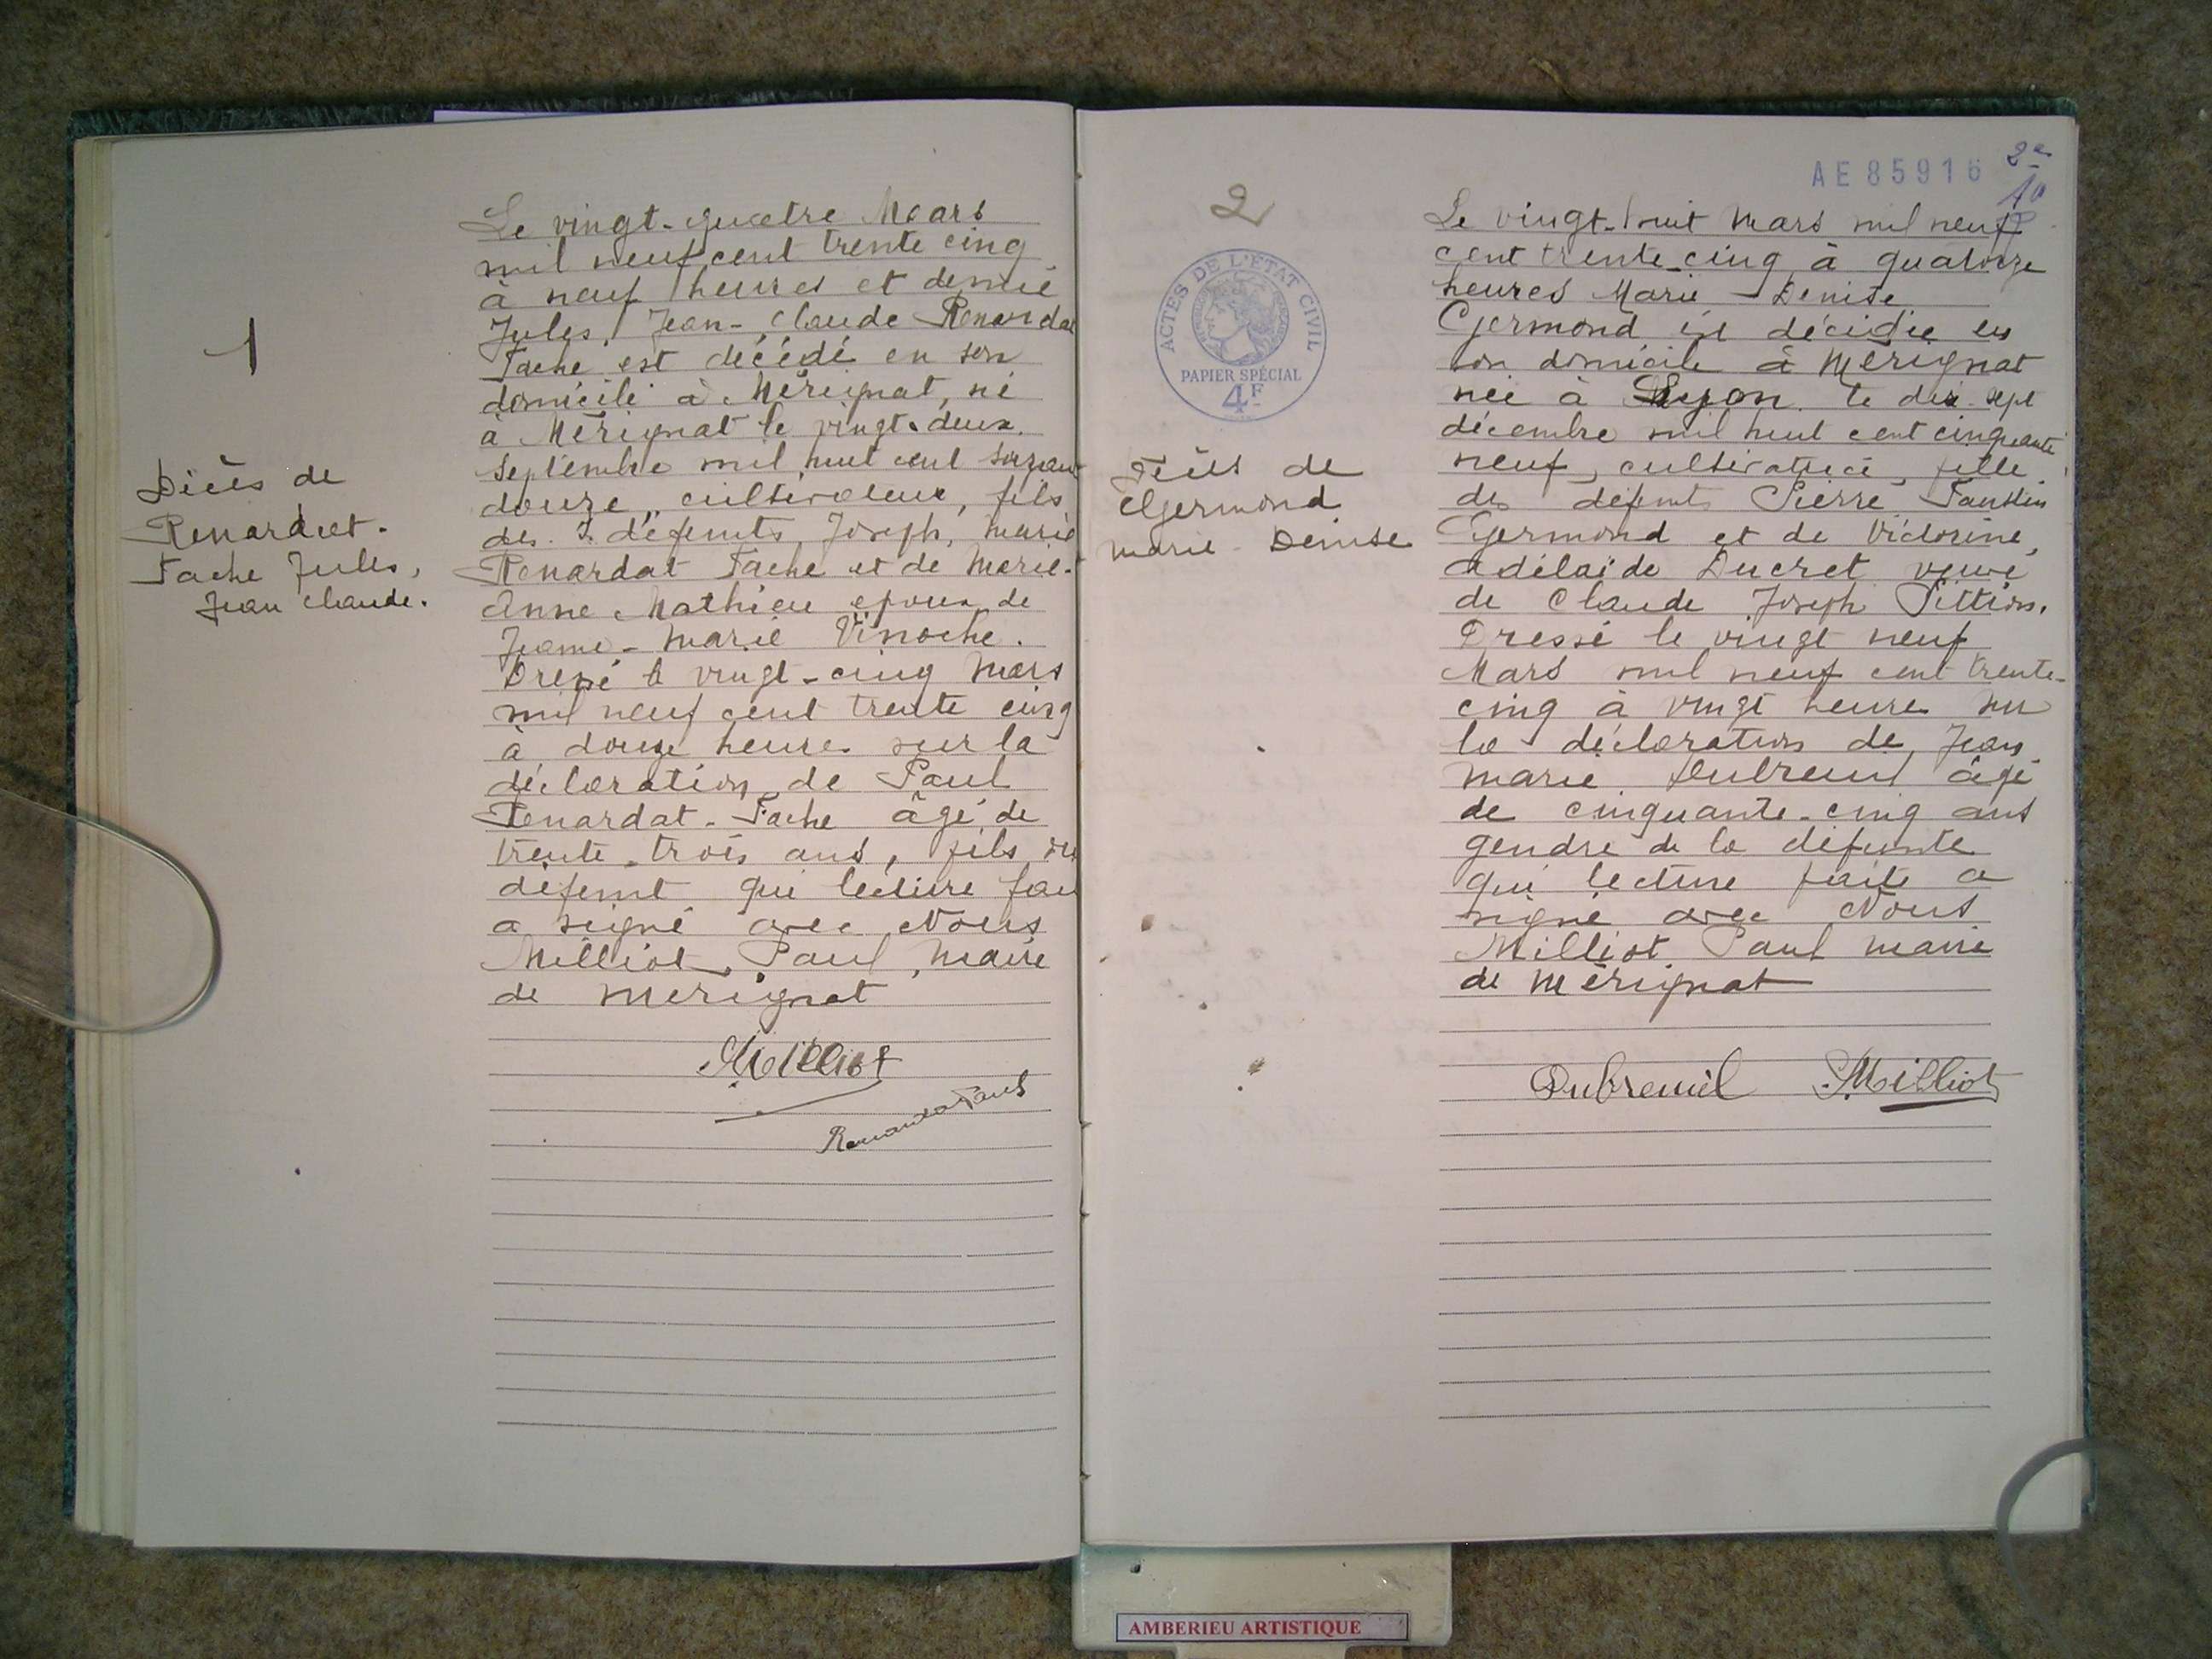 1
Décès de
Renardat-
Tache Jules,
Jean Claude.
Le vingt-quatre Mars
mil neuf cent trente cinq
à neuf heures et demie
Jules, Jean-Claude Renardat
Tache est décédé en son
domicile à Mérignat, né
à Mérignat le vingt-deux
Septembre mil huit cent soixan
douze, cultivateur, fils
des défunts, Joseph, Marie
Renardat Tache et de Marie-
Anne Mathieu epoux de
Jeanne-Marie Vinoche.
Dressé le vingt-cinq Mars
mil neuf cent trente cinq
à douze heures sur la
déclaration de Paul
Renardat-Tache âgé de
trente-trois ans, fils du
défunt qui lecture fai
a signé avec Nous
Milliot, Paul, maire
de Mérignat
Milliot
Renardat Paul
AE 85916
2e
2
ACTES DE L'ÉTAT CIVIL
PAPIER SPÉCIAL
4F
de
Germond
Marie-Denise
Le vingt-huit Mars mil neuf
cent trente-cinq à quatorze
heures Marie-Denise
Germond est décédée en
son domicile à Mérignat
née à Lyon le dix-sept
décembre mil huit cent cinquante
neuf, cultivatrice, fille
des défunts Pierre Faustin
Germond et de Victorine,
Adélaïde Ducret veuve
de Claude Joseph Pittion.
Dressé le vingt neuf
Mars mil neuf cent trente-
cinq à vingt heures sur
la déclaration de Jean
Marie Dubreuil âgé
de cinquante-cinq ans
gendre de la défunte
qui lecture faite a
signé avec Nous
Milliot Paul maire
de Mérignat
Dubreuil P. Milliot
AMBERIEU ARTISTIQUE